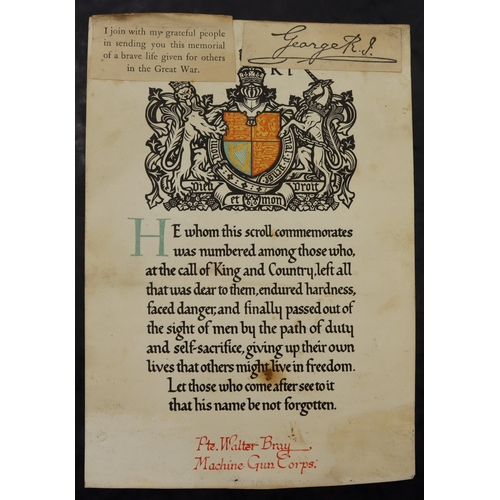 I join with my grateful people
in sending you this memorial
of a brave life given for others
in the Great War.
George R.I.
Dieu Droit
et mon
HE whom this scroll commemorates
was numbered among those who,
at the call of King and Country, left all
that was dear to them, endured hardness,
faced danger, and finally passed out of
the sight of men by the path of duty
and self-sacrifice, giving up their own
lives that others might live in freedom.
Let those who come after see to it
that his name be not forgotten.
Pte. Walter Bray
Machine Gun Corps.